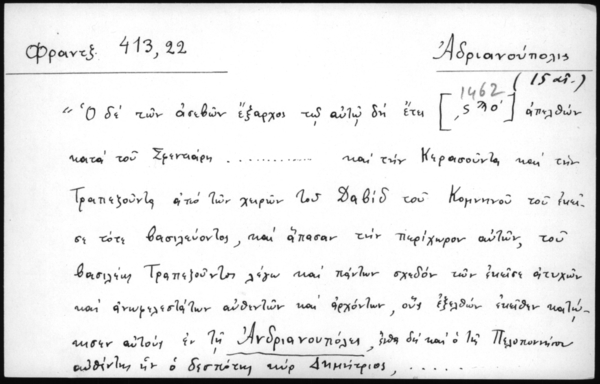 Φραντζ. 413,22
Ἀδριανούπολις
(15 αἰ.)
1462
"Ὁ δὲ τῶν ἀσεβῶν ἔξαρχος τῷ αὐτῷ δὴ ἔτει [͵ϛ ϡο'] ἀπελθὼν
κατὰ τοῦ ............ καὶ τὴν Κερασοῦντα καὶ τὴν
Τραπεζοῦντα ἀπὸ τῶν χειρῶν τοῦ Δαβὶδ τοῦ Κομνηνοῦ τοῦ ἐκεῖ-
σε τότε βασιλεύοντος, καὶ ἅπασαν τὴν περίχωρον αὐτῶν, τοῦ
βασιλέως Τραπεζοῦντος λέγω καὶ πάντων σχεδὸν τῶν ἐκεῖσε ἀτυχῶν
καὶ αὐθεντῶν καὶ ἀρχόντων, οὓς ἐξελθὼν ἐκεῖθεν κατῴ-
κησεν αὐτοὺς ἐν τῇ Ἀνδριανουπόλει, ἔνθα δὴ καὶ ὁ τῆς Πελοποννήσου
αὐθέντης ἦν ὁ δεσπότης κὺρ Δημήτριος, ......